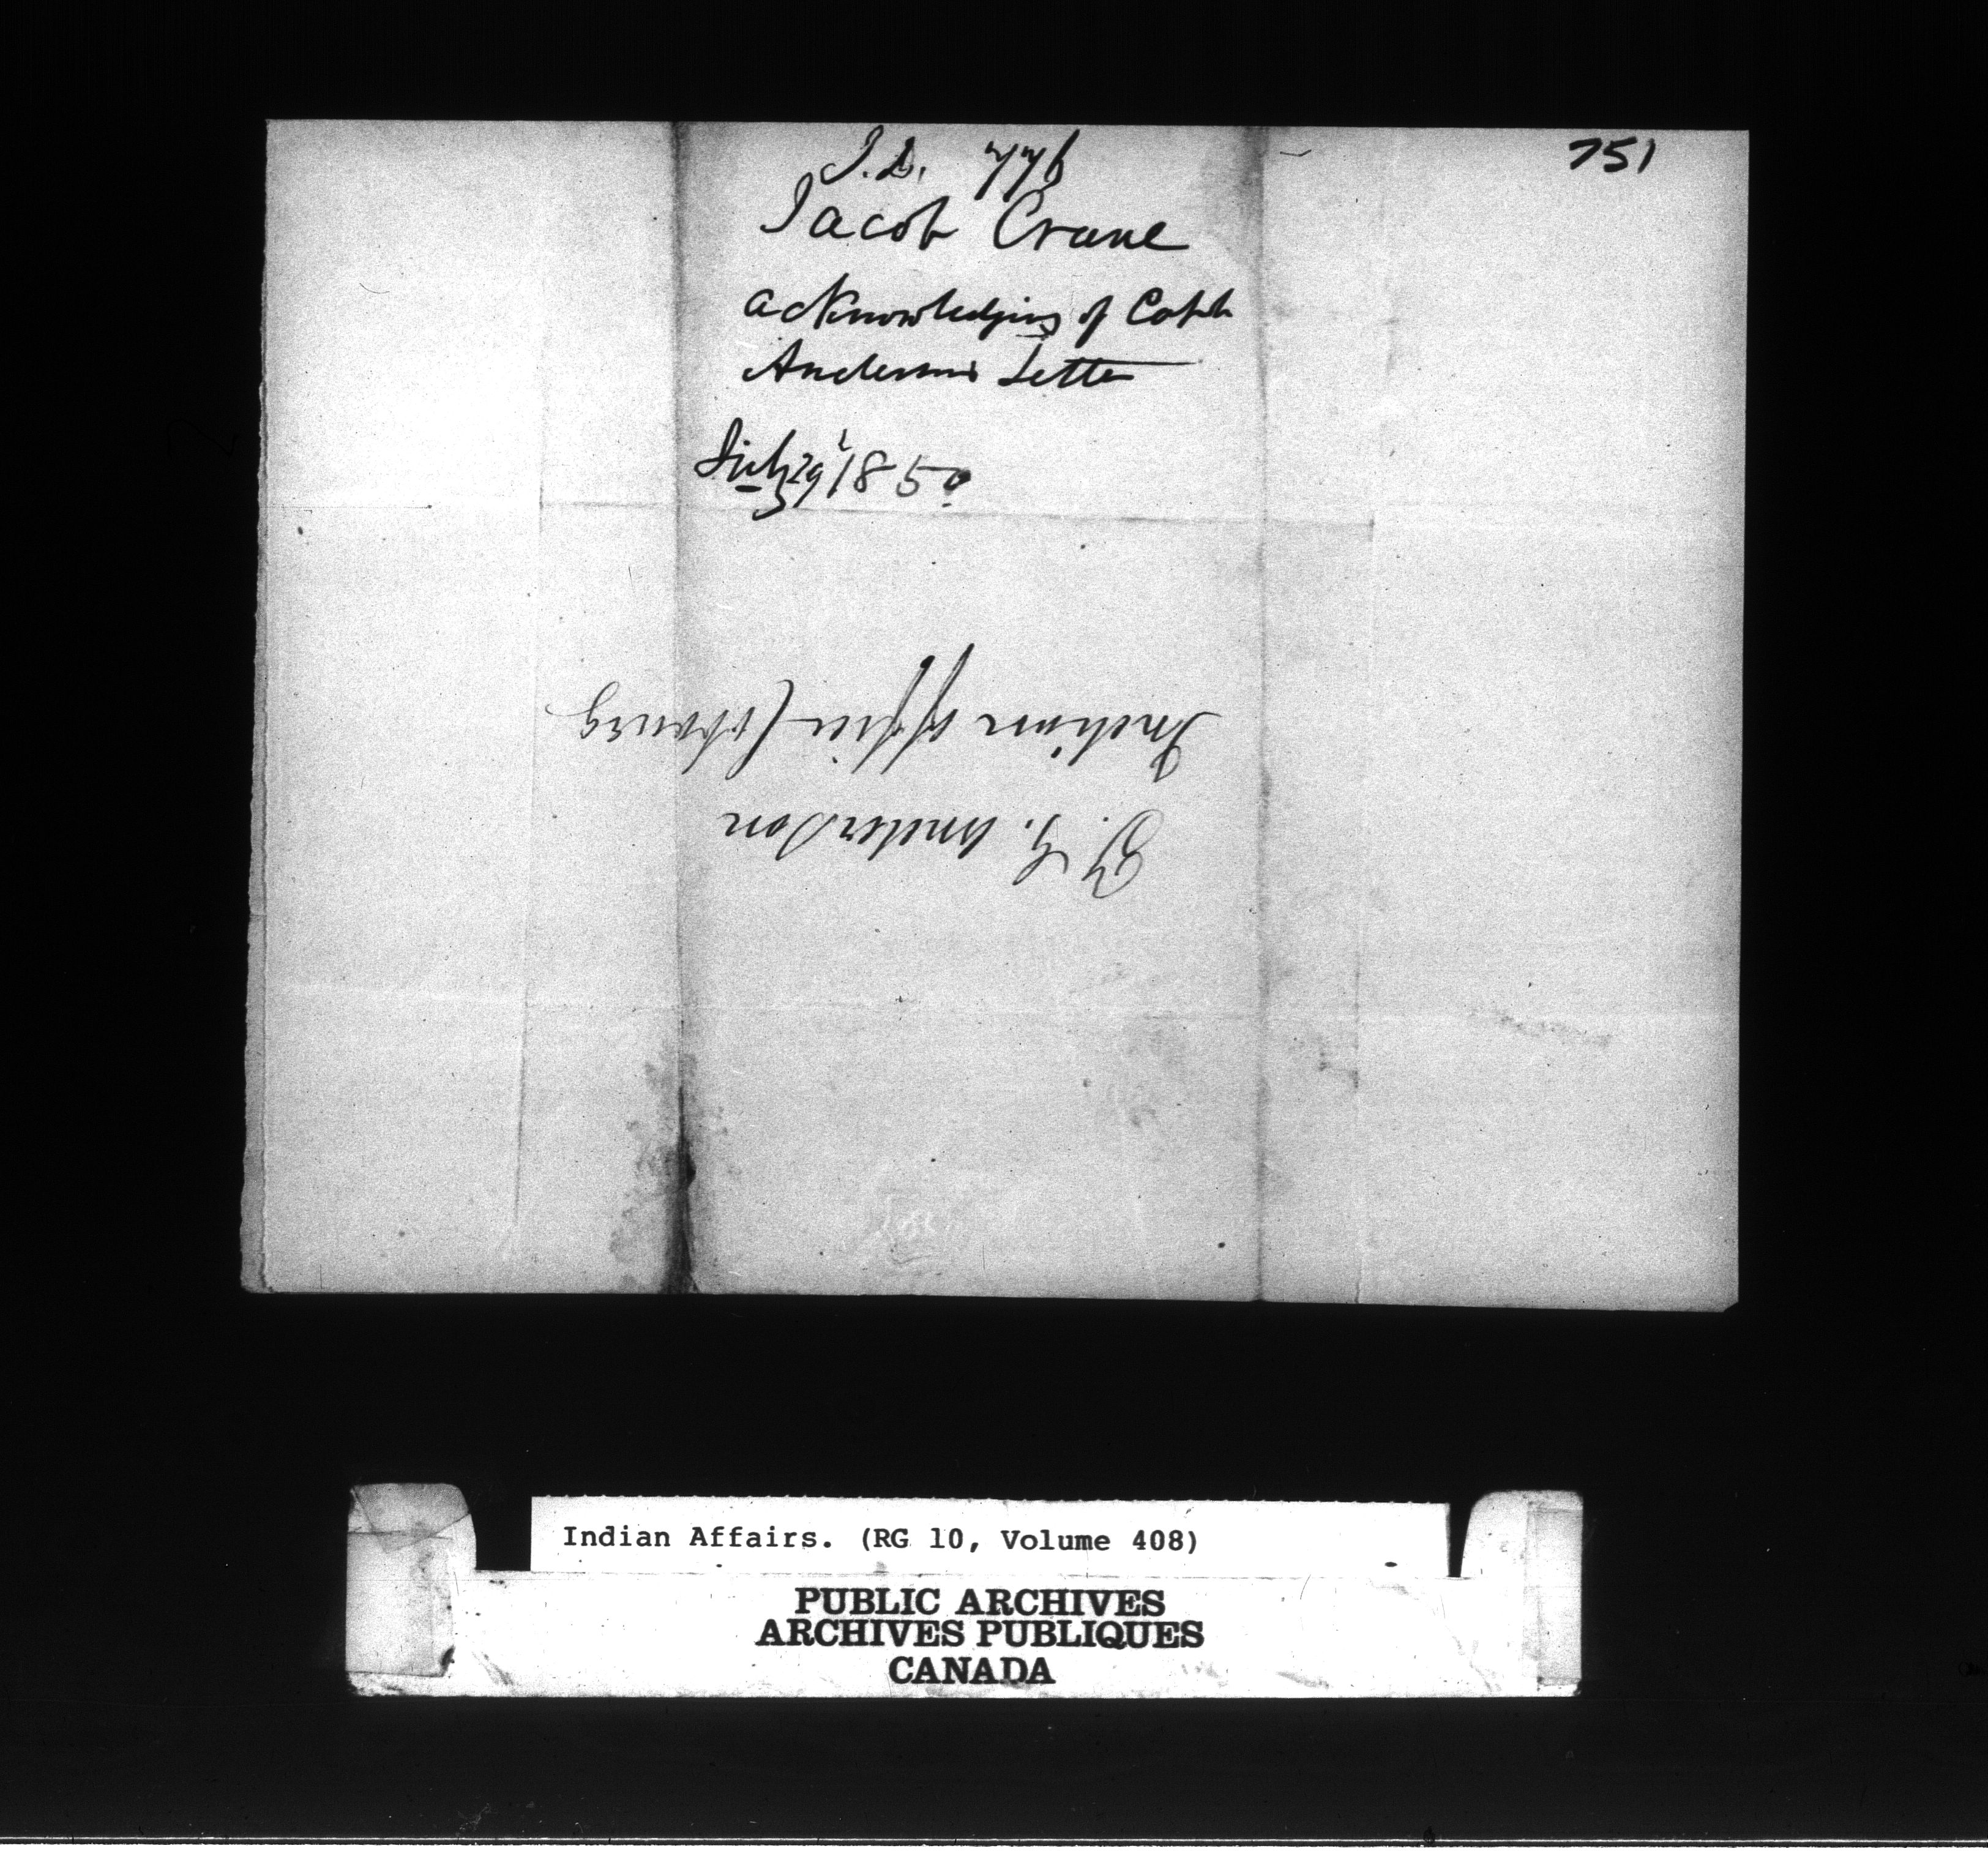 751
I.D. 776
Jacob Crane
acknowledging of Capt
Andersons Letter
July 29 1850
T. G. Anderson
Indian office Cobourg
Indian Affairs. (RG 10, Volume 408)
PUBLIC ARCHIVES
ARCHIVES PUBLIQUES
CANADA